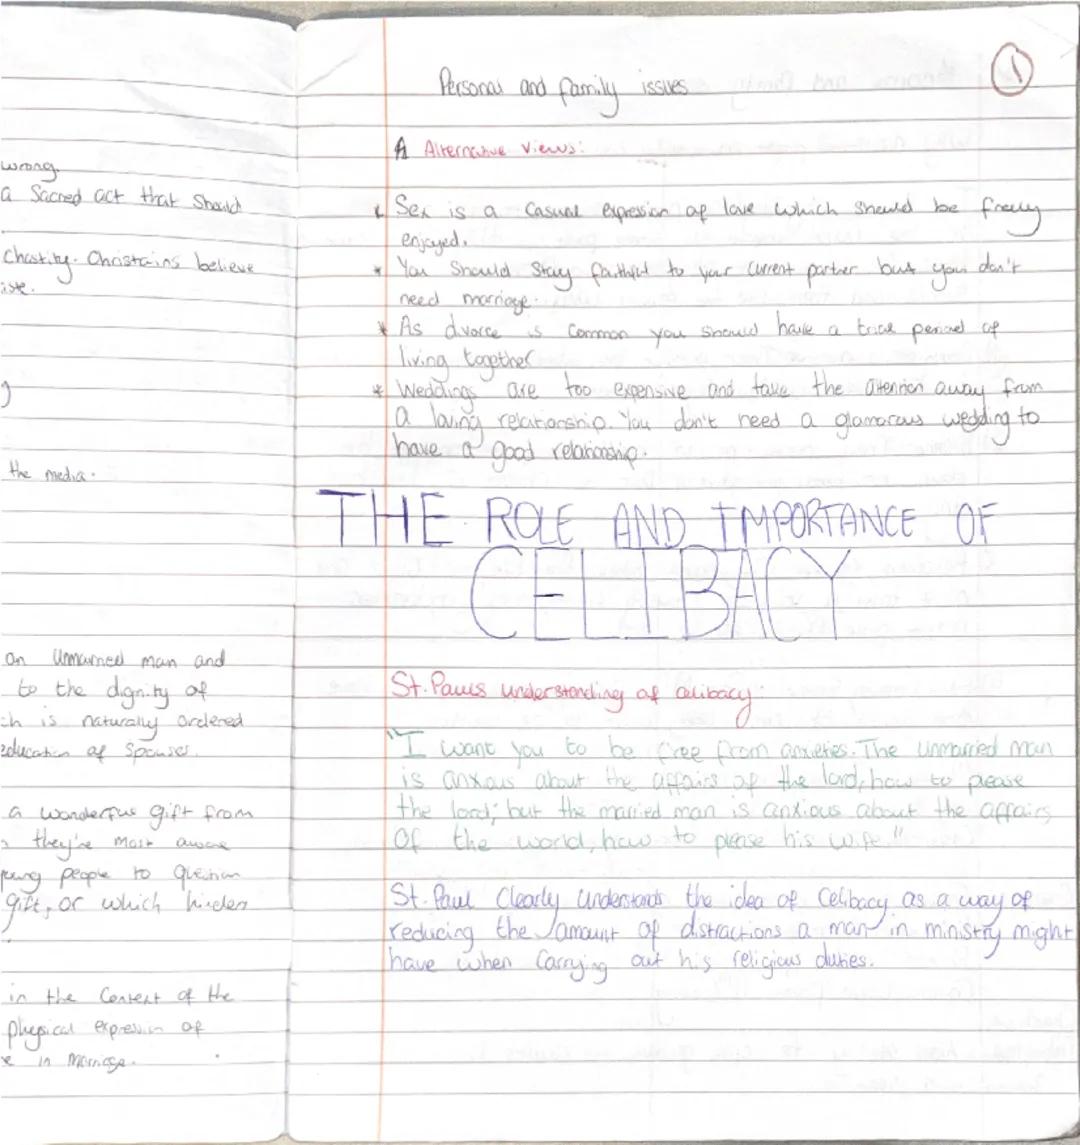 wrong.
a Sacred act that Should
Chastity. Christains believe
the media.
an Unmarried man and
to the dignity of
ch is naturally ordered
education of Spouses.
a wonderful gift from
they're most aware
young people to question
gift, or which hinder
in the Context of the
physical expression of
in Marriage.
1
Personal and family issues
A Alternative Views:
* Sex is a Casual expression of love which should be freely
enjoyed.
* You Should Stay faithful to your current partner but you don't
need marriage.
* As divorce is Common you should have a trial period of
living together
* Weddings are too expensive and take the attention away from
a loving relationship. You don't need a glamorous wedding to
have a good relationship.
THE ROLE AND IMPORTANCE OF
CELIBACY
St. Pauls understanding of celibacy:
"I want you to be free from anxieties. The unmarried man
is anxious about the affairs of the lord, how to please
the lord; but the married man is anxious about the affairs
Of the world, how to please his wife."
St. Paul Clearly understands the idea of Celibacy as a way of
reducing the amount of distractions a man in ministry might
have when Carrying out his religious duties.